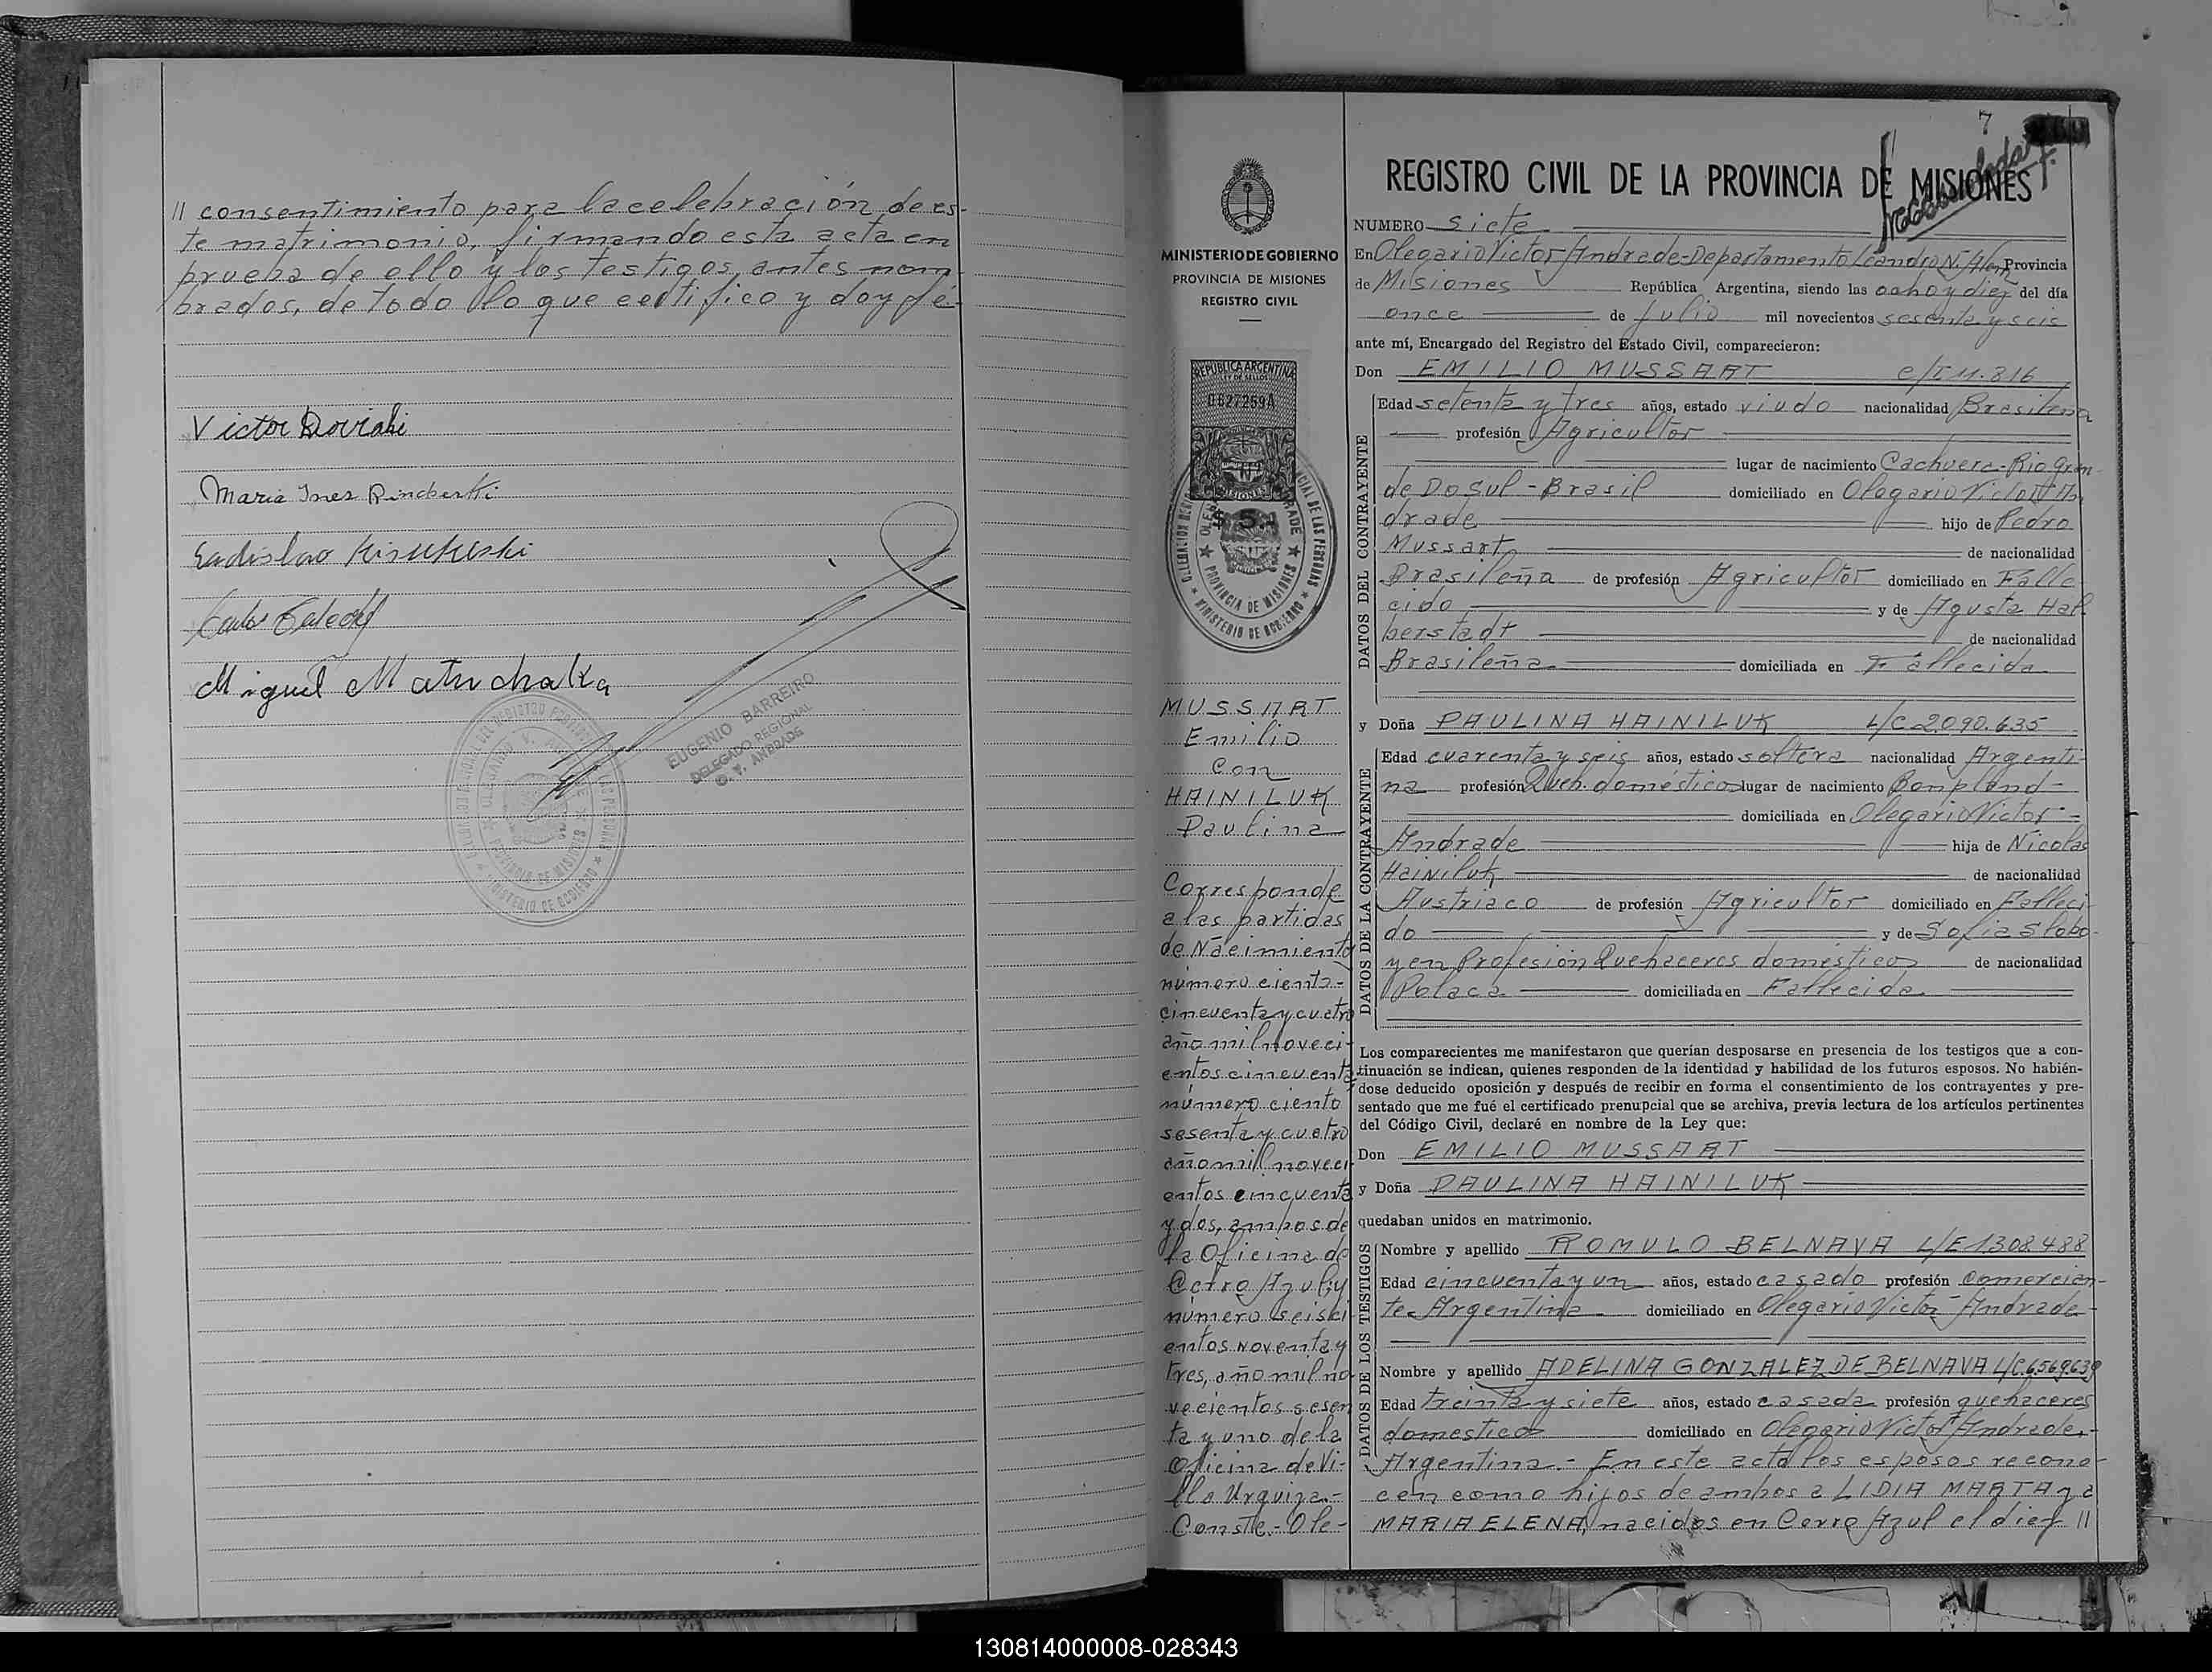 // consentimiento para la celebración de es-
te matrimonio, firmando esta acta en
prueba de ello y los testigos, antes nom-
brados, de todo lo que certifico y doy fé-
Victor
Maria Ines
Ladislao
Carlos
Miguel Matuchaka
EUGENIO BARREIRO
DELEGADO REGIONAL
O. V. ANDRADE
7
REGISTRO CIVIL DE LA PROVINCIA DE MISIONES
MINISTERIO DE GOBIERNO
PROVINCIA DE MISIONES
REGISTRO CIVIL
REPUBLICA ARGENTINA
LEY DE SELLOS
0827259A
MISIONES
NUMERO siete
En Olegario Victor Andrade-Departamento Leandro N. Alem Provincia
de Misiones República Argentina, siendo las ocho y diez del día
once de julio mil novecientos sesenta y seis
ante mí, Encargado del Registro del Estado Civil, comparecieron:
Don EMILIO MUSSART C/I 11.816
DATOS DEL CONTRAYENTE
Edad setenta y tres años, estado viudo nacionalidad Brasilena
profesión Agricultor
lugar de nacimiento Cachuera-Rio Gran-
de Do Sul - Brasil domiciliado en Olegario Victor An
drade hijo de Pedro
Mussart de nacionalidad
Brasileña de profesión Agricultor domiciliado en Falle
cido y de Agusta Hal
berstadt de nacionalidad
Brasileña domiciliada en Fallecida
y Doña PAULINA HAINILUK L/C 2.090.635
DATOS DE LA CONTRAYENTE
Edad cuarenta y seis años, estado soltera nacionalidad Argenti-
na profesión Queh. domésticos lugar de nacimiento Bonpland-
domiciliada en Olegario Victor
Andrade hija de Nicolas
Hainiluk de nacionalidad
Austriaco de profesión Agricultor domiciliado en Falleci-
do y de Sofia Slobo-
yen Profesión Quehaceres domésticos de nacionalidad
Polaca domiciliada en Fallecida
Los comparecientes me manifestaron que querían desposarse en presencia de los testigos que a con-
tinuación se indican, quienes responden de la identidad y habilidad de los futuros esposos. No habién-
dose deducido oposición y después de recibir en forma el consentimiento de los contrayentes y pre-
sentado que me fué el certificado prenupcial que se archiva, previa lectura de los artículos pertinentes
del Código Civil, declaré en nombre de la Ley que:
Don EMILIO MUSSART
y Doña PAULINA HAINILUK
quedaban unidos en matrimonio.
DATOS DE LOS TESTIGOS
Nombre y apellido ROMULO BELNAVA L/E 1.308.488
Edad cincuenta y un años, estado casado profesión Comercian-
te-Argentina domiciliado en Olegario Victor Andrade-
Nombre y apellido ADELINA GONZALEZ DE BELNAVA L/C.6.569.639
Edad treinta y siete años, estado casada profesión quehaceres
domesticos domiciliado en Olegario Victor Andrade.-
Argentina.- En este acto los esposos recono-
cen como hijos de ambos a LIDIA MARTA y a
MARIA ELENA, nacidos en Cerro Azul el diez //
MUSSART
Emilio
con
HAINILUK
Paulina
Corresponde
a las partidas
de Nacimiento
número ciento-
cincuenta y cuatro
año mil noveci-
entos cincuenta,
número ciento
sesenta y cuatro
año mil noveci-
entos cincuenta
y dos, ambos de
la Oficina de
Cerro Azul; y
número seisci
entos noventa y
tres, año mil no-
vecientos sesen
ta y uno de la
Oficina de Vi-
lla Urquiza.-
Conste.- Ole-
130814000008-028343